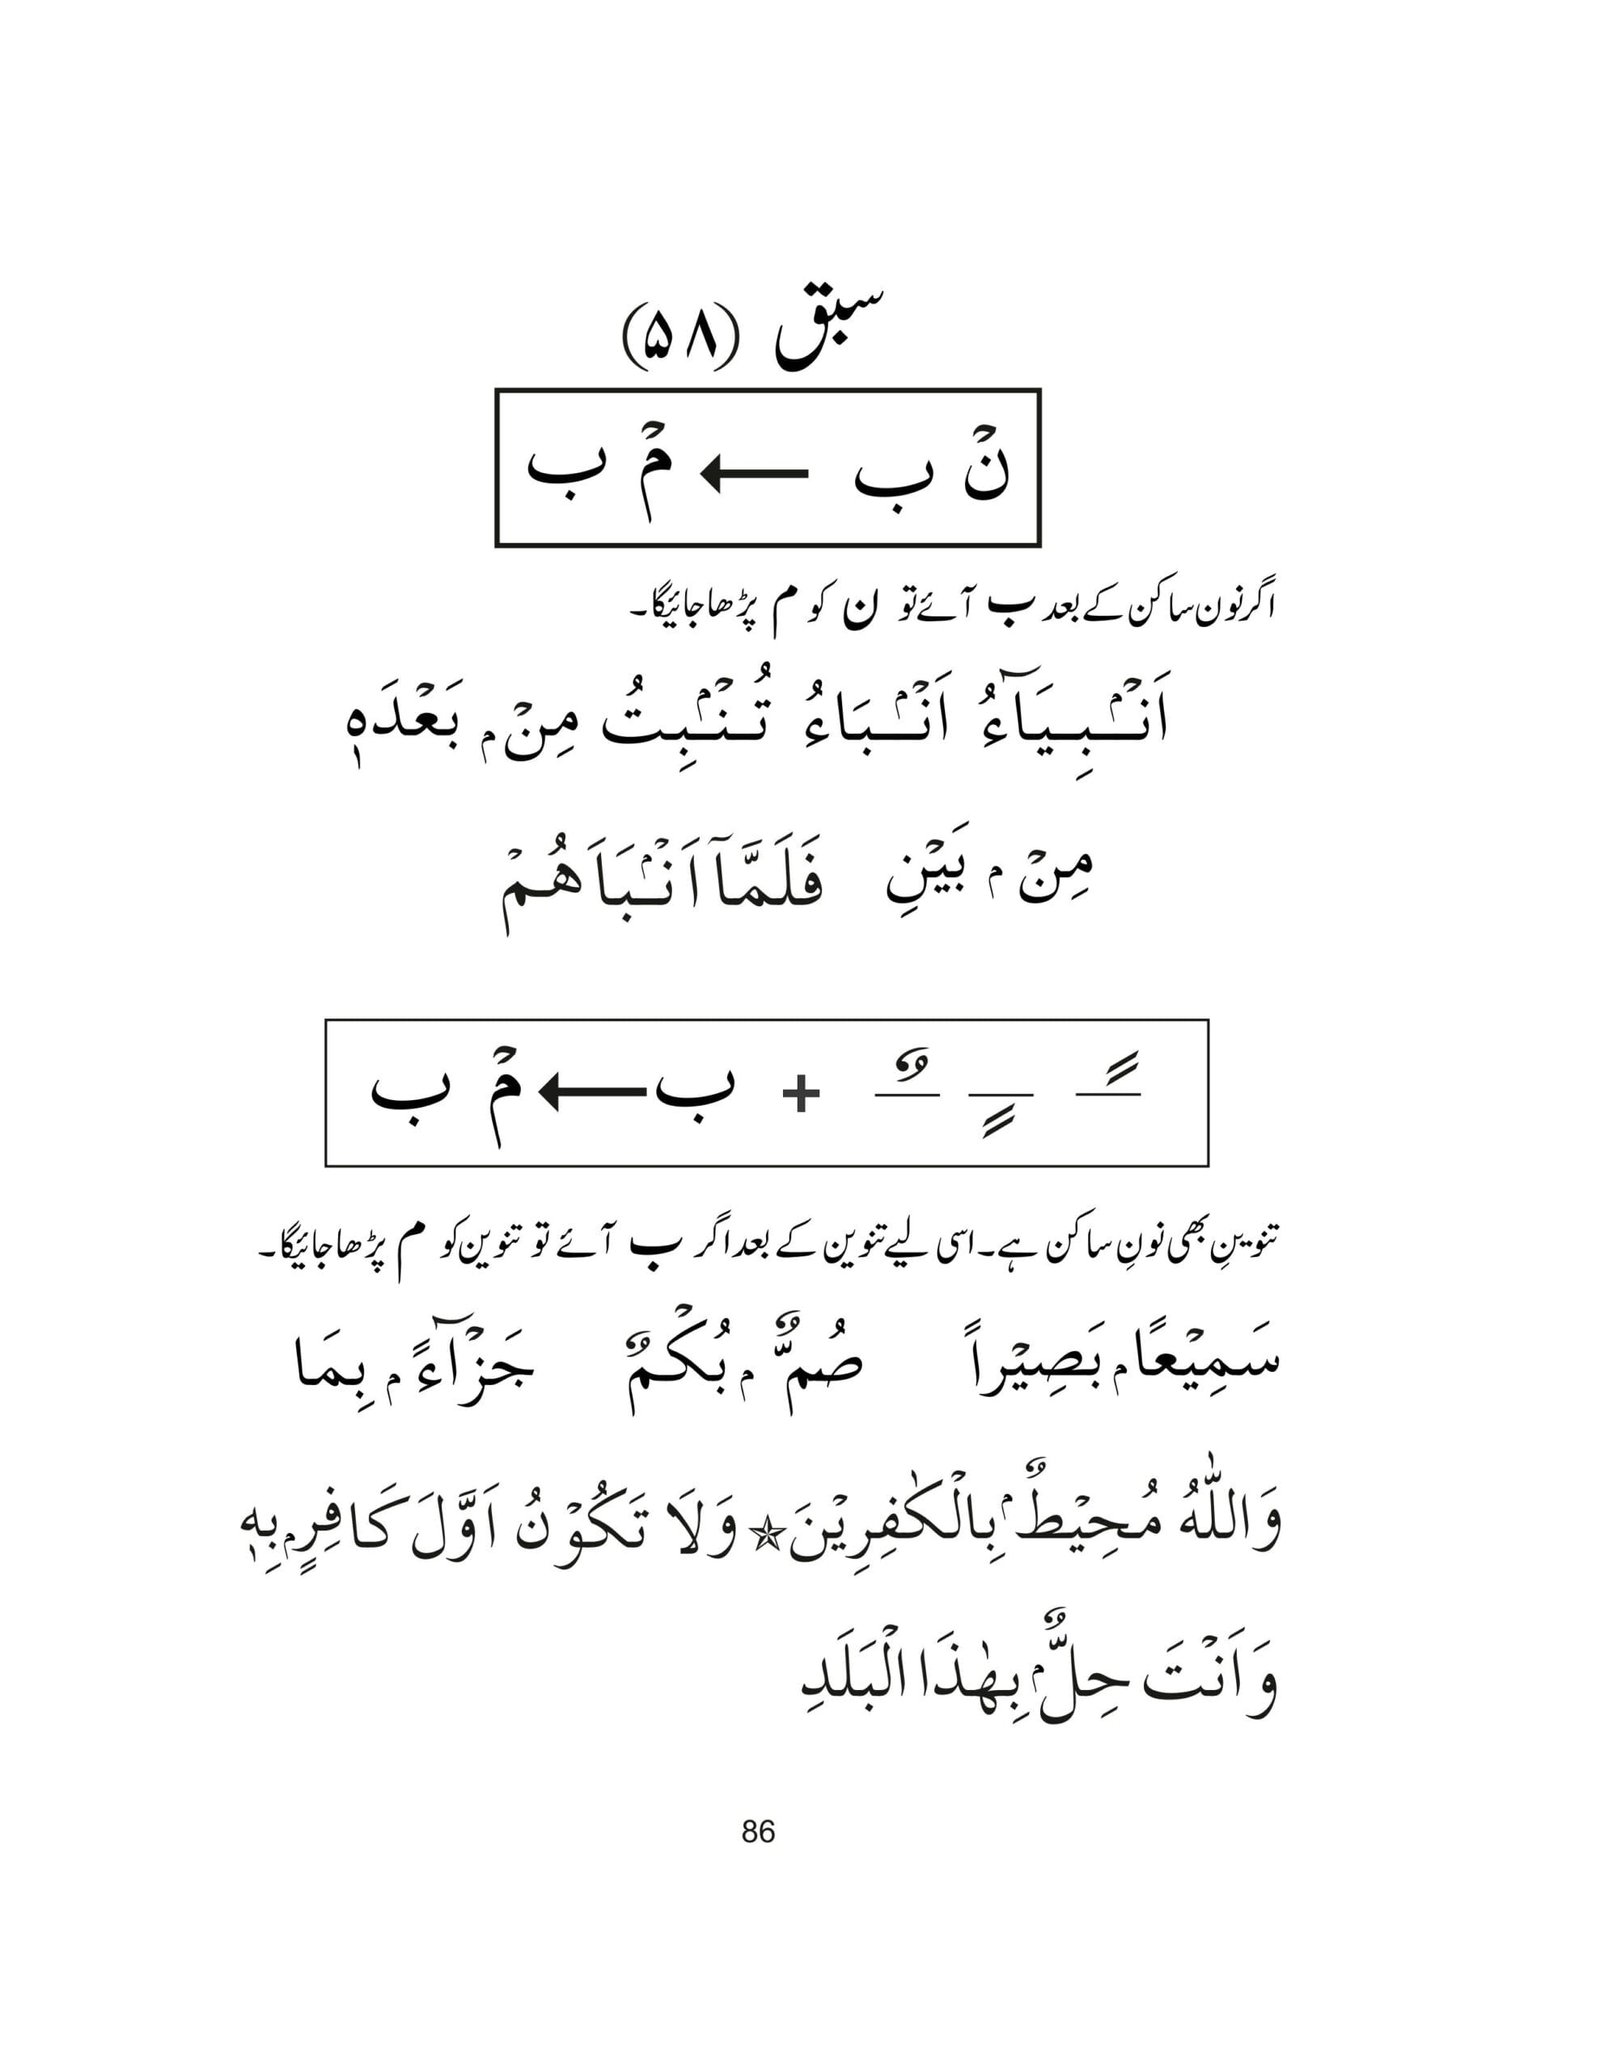 سبق (۵۸)
نْ ب ← مْ ب
اگر نون ساکن کے بعد ب آئے تو ن کو م پڑھا جائیگا۔
اَنْۢـبِـيَآءُ اَنْۢـبَاءُ تُـنْۢـبِتُ مِنْۢ بَعْدَهٖ
مِنْۢ بَيْنِ فَلَمَّآ اَنْۢبَاَهُمْ
ً ٍ ٌ + ب ← مْ ب
تنوینِ بھی نونِ ساکن ہے۔ اسی لیے تنوین کے بعد اگر ب آئے تو تنوین کو م پڑھا جائیگا۔
سَمِيْعًاۢ بَصِيْراً صُمٌّۢ بُكْمٌ جَزْآءًۢ بِمَا
وَاللّٰهُ مُحِيْطٌۢ بِالْكٰفِرِيْنَ ☆ وَلَا تَكُوْنُ اَوَّلَ كَافِرٍۭ بِهٖ
وَاَنْتَ حِلٌّۢ بِهٰذَا الْبَلَدِ
86